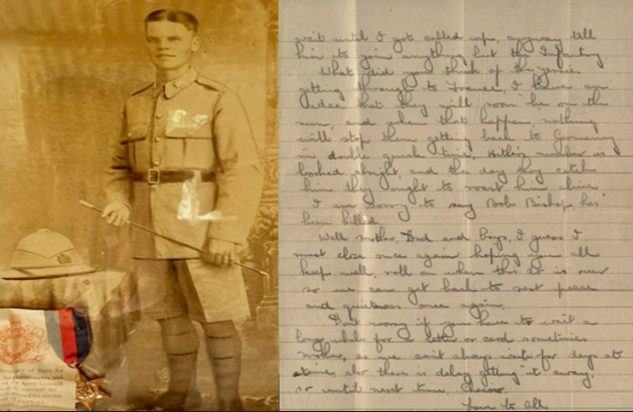 wait until I got called up, anyway tell
him to join anything but the Infantry
What did you think of the
getting through to France, I have an
idea that they will soon be on the
run, and when that happens nothing
will stop them getting back to Germany
in double quick time, Hitler's number is
booked alright, and the day they catch
him they ought to roast him alive
I am sorry to say Bob Bishop has
been killed.
Well Mother, Dad and Boys, I guess I
must close once again hoping you all
keep well, roll on when this is over
so we can get back to rest peace
and quietness once again.
Don't worry if you have to wait a
long while for a letter or card sometimes
Mother, as we can't always write for days at
time, also there is delay getting it away.
so until next time, Cheerio.
Yours to All